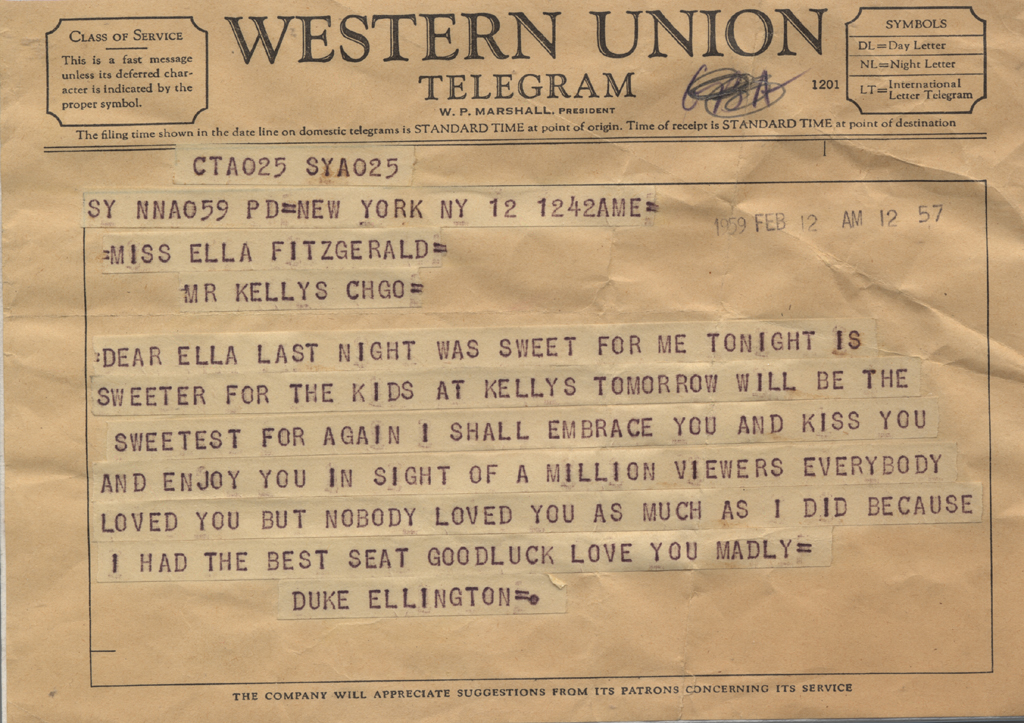 CLASS OF SERVICE
This is a fast message
unless its deferred char-
acter is indicated by the
proper symbol.
WESTERN UNION
TELEGRAM
W. P. MARSHALL, PRESIDENT
1201
SYMBOLS
DL=Day Letter
NL=Night Letter
LT=International Letter Telegram
The filing time shown in the date line on domestic telegrams is STANDARD TIME at point of origin. Time of receipt is STANDARD TIME at point of destination
CTA025 SYA025
SY NNA059 PD=NEW YORK NY 12 1242AME=
1959 FEB 12 AM 12 57
=MISS ELLA FITZGERALD=
MR KELLYS CHGO=
:DEAR ELLA LAST NIGHT WAS SWEET FOR ME TONIGHT IS
SWEETER FOR THE KIDS AT KELLYS TOMORROW WILL BE THE
SWEETEST FOR AGAIN I SHALL EMBRACE YOU AND KISS YOU
AND ENJOY YOU IN SIGHT OF A MILLION VIEWERS EVERYBODY
LOVED YOU BUT NOBODY LOVED YOU AS MUCH AS I DID BECAUSE
I HAD THE BEST SEAT GOODLUCK LOVE YOU MADLY=
DUKE ELLINGTON=.
THE COMPANY WILL APPRECIATE SUGGESTIONS FROM ITS PATRONS CONCERNING ITS SERVICE